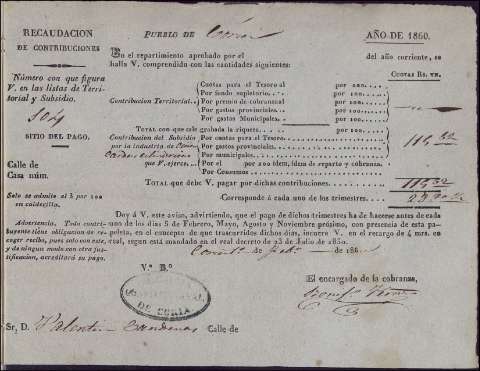 RECAUDACION
DE CONTRIBUCIONES
PUEBLO DE Coria
AÑO DE 1860.
En el repartimiento aprobado por el
del año corriente, se
halla V. comprendido con las cantidades siguientes:
Número con que figura
V. en las listas de Terri-
torial y Subsidio.
104
SITIO DEL PAGO.
Calle de
Casa núm.
Solo se admite el 3 por 100
en calderilla.
CUOTAS RS. VN.
Contribucion Territorial.
Cuotas para el Tesoro al por 100.
Por fondo supletorio. por 100.
Por premio de cobranza al por 100.
Por gastos provinciales. por 100.
Por gastos Municipales. por 100.
Total con que salga gravada la riqueza:
Contribucion del Subsidio
por la industria de
que V. ejerce.
Por cuotas para el Tesoro.
Por gastos provinciales.
Por municipales.
Por el por 200 idem, idem de reparto y cobranza.
Por Consumos
115,32
Total que debe V. pagar por dichas contribuciones. 115,32
Corresponde á cada uno de los trimestres.
Advertencia. Todo contri-
buyente tiene obligacion de re-
coger recibo, pues solo con este,
y de ningun modo con otra jus-
tificacion, acreditará su pago.
Doy á V. este aviso, advirtiendo, que el pago de dichos trimestres ha de hacerse antes de cada
uno de los dias 5 de Febrero, Mayo, Agosto y Noviembre próximo, con presencia de esta pa-
peleta, en el concepto de que trascurridos dichos dias, incurre V. en el recargo de 4 mrs. en
real, segun está mandado en el real decreto de 23 de Julio de 1850.
de 186
V.º B.º
DE CORIA
El encargado de la cobranza,
Sr. D. Valentin Cardenas Calle de